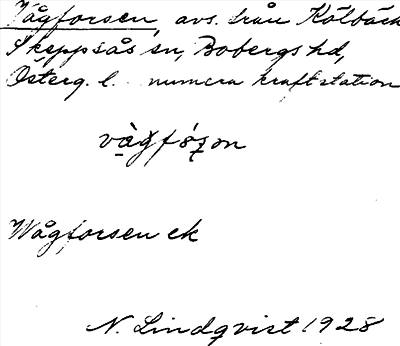 Vågforsen, avs. från Kölbäck
Skeppsås sn, Bobergs hd,
Österg. l. numera kraftstation
vàgfórson
Wågforsen ek
N. Lindqvist 1928